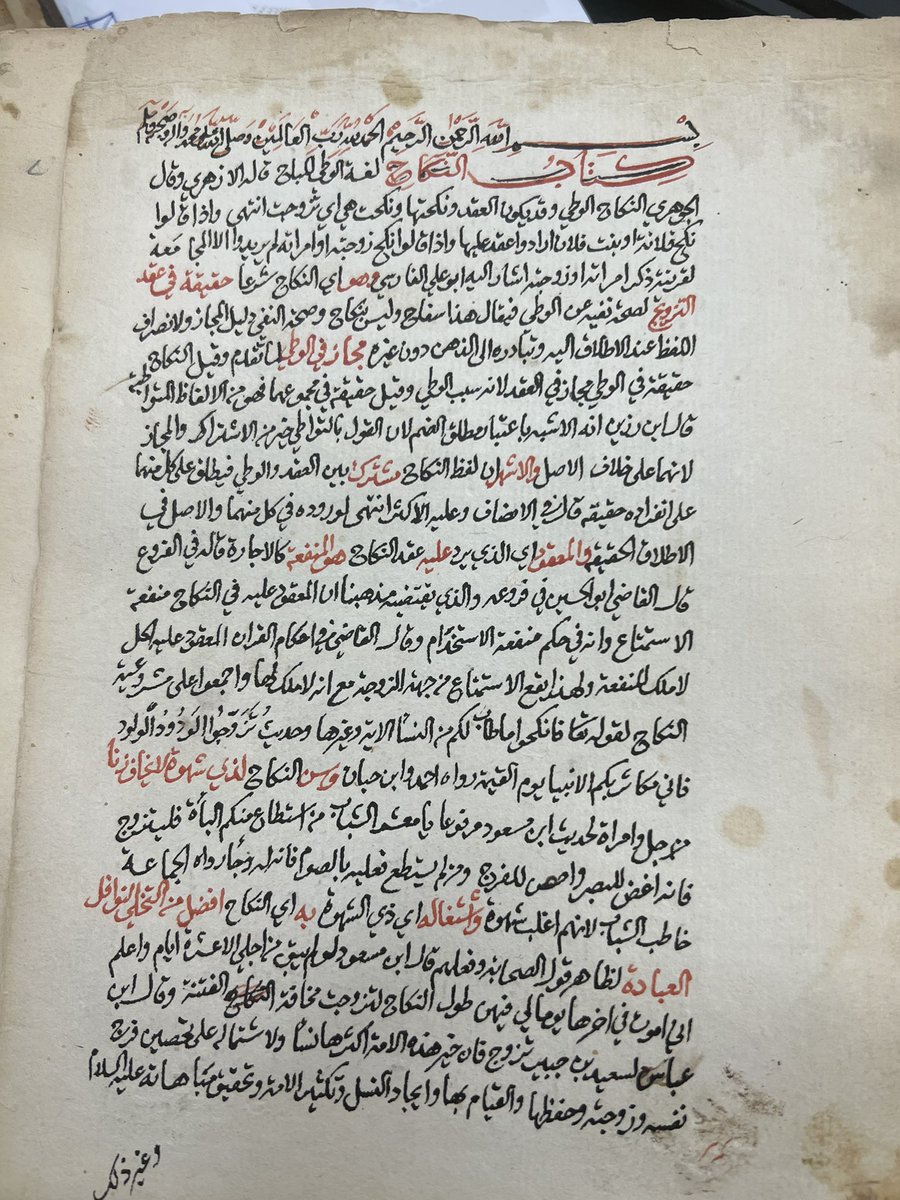 بسم الله الرحمن الرحيم الحمد لله رب العالمين وصلى الله على محمد واله وصحبه وسلم
كتاب النكاح لغة الوطي المباح قاله الازهري وقال
الجوهري النكاح الوطي وقد يكون العقد ونكحتها ونكحت هي اي تزوجت انتهى واذا قالوا
نكح فلانة او بنت فلان ارادوا عقد عليها واذا قالوا نكح زوجته او امراته لم يريدوا الا المجامعة
لقرينة ذكر امراته او زوجته اشار اليه ابو علي الفارسي وهو اي النكاح شرعا حقيقة في عقد
التزويج لصحة نفيه عن الوطي فيقال هذا سفاح وليس بنكاح وصحة النفي دليل المجاز ولانصراف
اللفظ عند الاطلاق اليه وتبادره الى الذهن دون غيره مجاز في الوطي لما تقدم وقيل النكاح
حقيقة في الوطي مجاز في العقد لانه سبب الوطي وقيل حقيقة في مجموعهما فهو من الالفاظ المتواطية
قال ابن رزين انه الاشبه باعتبار مطلق الضم لان القول بالتواطي خير من الاشتراك والمجاز
لانهما على خلاف الاصل والاشهر ان لفظ النكاح مشترك بين العقد والوطي فيطلق على كل منهما
على انفراده حقيقة قال في الانصاف وعليه الاكثر انتهى لوروده في كل منهما والاصل في
الاطلاق الحقيقة والمعقود اي الذي يرد عليه عقد النكاح هو المنفعة كالاجارة قاله في الفروع
قال القاضي ابو الحسين في فروعه والذي يقتضيه مذهبنا ان المعقود عليه في النكاح منفعة
الاستمتاع وانه في حكم منفعة الاستخدام وقال القاضي في احكام القران المعقود عليه الحل
لا ملك المنفعة ولهذا يقع الاستمتاع من جهة الزوجة مع انه لا ملك لها واجمعوا على مشروعية
النكاح لقوله تعا فانكحوا ما طاب لكم من النسا الاية وغيرها وحديث تزوجوا الودود الولود
فاني مكاثر بكم الانبيا يوم القيمة رواه احمد وابن حبان وسن النكاح لذي شهوة لا يخاف زنا
من رجل وامراة لحديث ابن مسعود مرفوعا يا معشر الشباب من استطاع منكم الباة فليتزوج
فانه اغض للبصر واحصن للفرج ومن لم يستطع فعليه بالصوم فانه له وجا رواه الجماعة
خاطب الشباب لانهم اغلب شهوة واشتغاله اي ذي الشهوة به اي النكاح افضل من التخلي لنوافل
العبادة لظاهر قول الصحابة وفعلهم قال ابن مسعود لو لم يبق من اجلي الا عشرة ايام واعلم
اني اموت في اخرها يوما لي فيهن طول النكاح لتزوجت مخافة الفتنة وقال ابن
عباس لسعيد بن جبير تزوج فان خير هذه الامة اكثرها نسا ولاشتماله على تحصين فرج
نفسه وزوجته وحفظها والقيام بها وايجاد النسل وتكثير الامة وتحقيق مباهاته عليه السلام
وغير ذلك